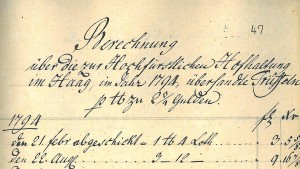 47
Berechnung
über die zur Hochfürstlichen Hofhaltung
im Haag, im Jahr 1794, übersandte Trüffeln
p tb zu 2½ Gulden.
fl xr
1794
den 21. febr abgeschickt = 1 tb 4 Loth
den 22. Aug. — 3 - 10 —